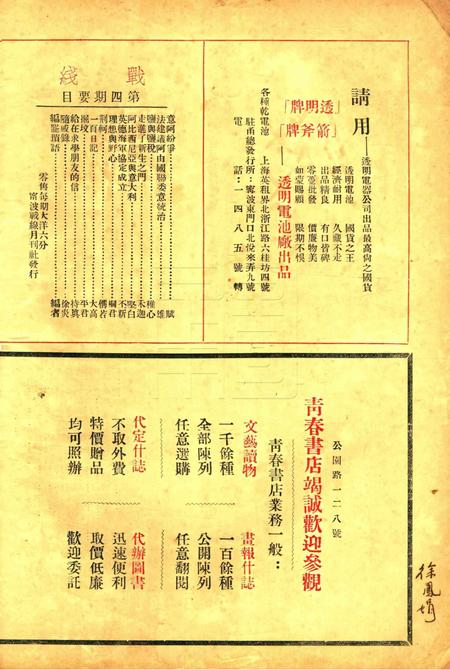 請用——透明電器公司出品最高尚之國貨
透明電池　國貨之王
經濟耐用　久藏不走
出品精良　有口皆碑
零躉批發　價廉物美
如蒙賜顧　限期不悞
「透明牌」
「箭斧牌」——透明電池廠出品
各種乾電池　上海英租界北浙江路六桂坊四號
駐甬總發行所：寧波東門口北伙來弄九號
電話：一四八五號轉
戰綫
第四期要目
意阿紛爭
法建議阿由國聯委意統治
鹽與鹽稅
走進了新生之門
阿比西尼亞與意大利
英德海軍協定成立
理想與野心
荆軻
一百日記
掘墳
給在求學朋友的信
隨感錄
編監瑣語
編者
零售每期大洋六分
甯波戰線月刊社發行
公園路一二八號
青春書店竭誠歡迎參觀
青春書店業務一般：
文藝讀物
一千餘種
全部陳列
任意選購
畫報什誌
一百餘種
公開陳列
任意翻閱
代定什誌
不取外費
特價贈品
均可照辦
代辦圖書
迅速便利
取價低廉
歡迎委託
徐鳳娟